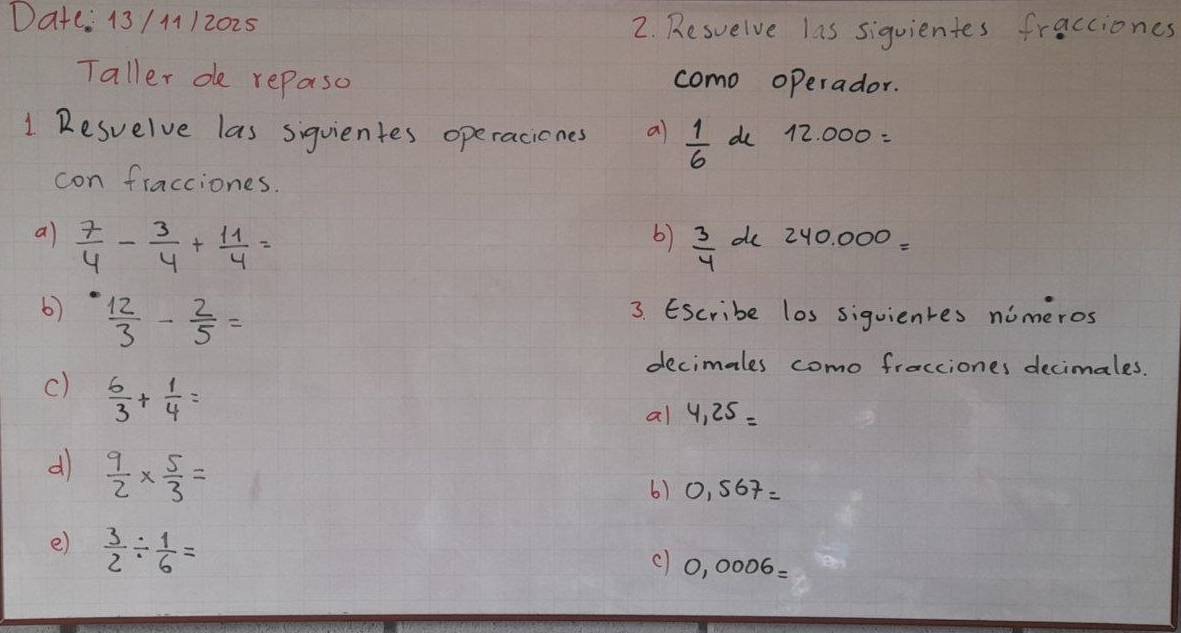 Date: 13/11/2025
Taller de repaso
1 Resuelve las siguientes operaciones
con fracciones.
a) 7/4 - 3/4 + 11/4 =
b) 12/3 - 2/5 =
c) 6/3 + 1/4 =
d) 9/2 x 5/3 =
e) 3/2 ÷ 1/6 =
2. Resuelve las siguientes fracciones
como operador.
a) 1/6 de 12.000 =
b) 3/4 de 240.000 =
3. Escribe los siguientes números
decimales como fracciones decimales.
a) 4,25 =
b) 0,567 =
c) 0,0006 =